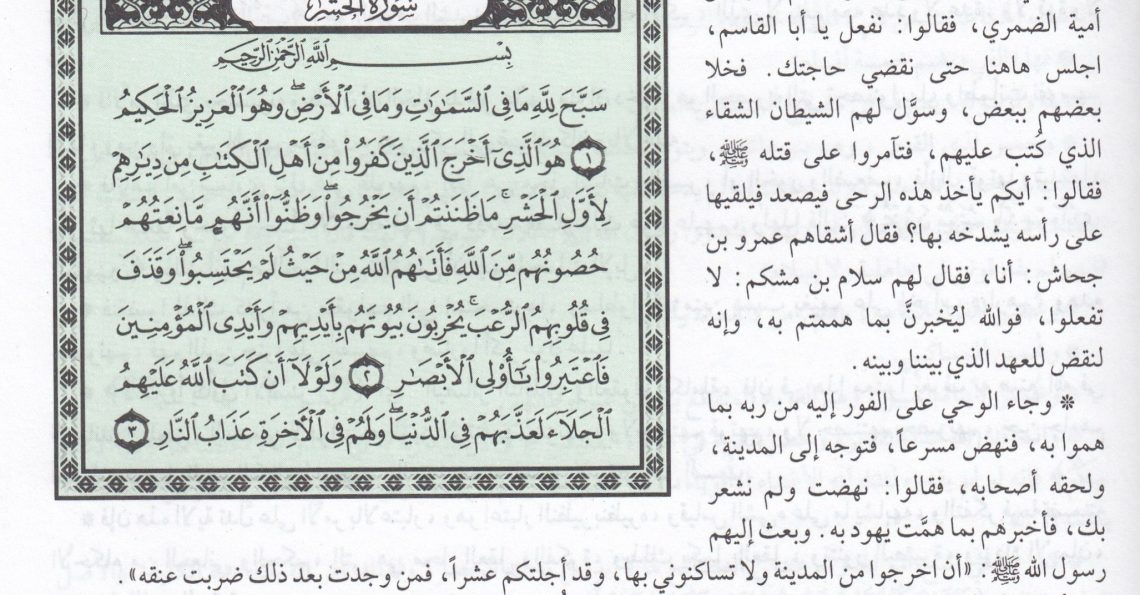 أمية الضمري، فقالوا: نفعل يا أبا القاسم،
اجلس هاهنا حتى نقضي حاجتك. فخلا
بعضهم ببعض، وسوّل لهم الشيطان الشقاء
الذي كُتب عليهم، فتآمروا على قتله ﷺ،
فقالوا: أيكم يأخذ هذه الرحى فيصعد فيلقيها
على رأسه يشدخه بها؟ فقال أشقاهم عمرو بن
جحاش: أنا، فقال لهم سلام بن مشكم: لا
تفعلوا، فوالله ليُخبرنّ بما هممتم به، وإنه
لنقض للعهد الذي بيننا وبينه.
* وجاء الوحي على الفور إليه من ربه بما
هموا به، فنهض مسرعاً، فتوجه إلى المدينة،
ولحقه أصحابه، فقالوا: نهضت ولم نشعر
بك، فأخبرهم بما همَّت يهود به. وبعث إليهم
سورة الحشر
بِسْمِ ٱللَّهِ ٱلرَّحْمَٰنِ ٱلرَّحِيمِ
سَبَّحَ لِلَّهِ مَا فِى ٱلسَّمَٰوَٰتِ وَمَا فِى ٱلْأَرْضِ ۖ وَهُوَ ٱلْعَزِيزُ ٱلْحَكِيمُ
١ هُوَ ٱلَّذِىٓ أَخْرَجَ ٱلَّذِينَ كَفَرُوا۟ مِنْ أَهْلِ ٱلْكِتَٰبِ مِن دِيَٰرِهِمْ
لِأَوَّلِ ٱلْحَشْرِ ۚ مَا ظَنَنتُمْ أَن يَخْرُجُوا۟ ۖ وَظَنُّوٓا۟ أَنَّهُم مَّانِعَتُهُمْ
حُصُونُهُم مِّنَ ٱللَّهِ فَأَتَىٰهُمُ ٱللَّهُ مِنْ حَيْثُ لَمْ يَحْتَسِبُوا۟ ۖ وَقَذَفَ
فِى قُلُوبِهِمُ ٱلرُّعْبَ ۚ يُخْرِبُونَ بُيُوتَهُم بِأَيْدِيهِمْ وَأَيْدِى ٱلْمُؤْمِنِينَ
فَٱعْتَبِرُوا۟ يَٰٓأُو۟لِى ٱلْأَبْصَٰرِ ٢ وَلَوْلَآ أَن كَتَبَ ٱللَّهُ عَلَيْهِمُ
ٱلْجَلَآءَ لَعَذَّبَهُمْ فِى ٱلدُّنْيَا ۖ وَلَهُمْ فِى ٱلْءَاخِرَةِ عَذَابُ ٱلنَّارِ ٣
رسول الله ﷺ: «أن اخرجوا من المدينة ولا تساكنوني بها، وقد أجلتكم عشراً، فمن وجدت بعد ذلك ضربت عنقه».